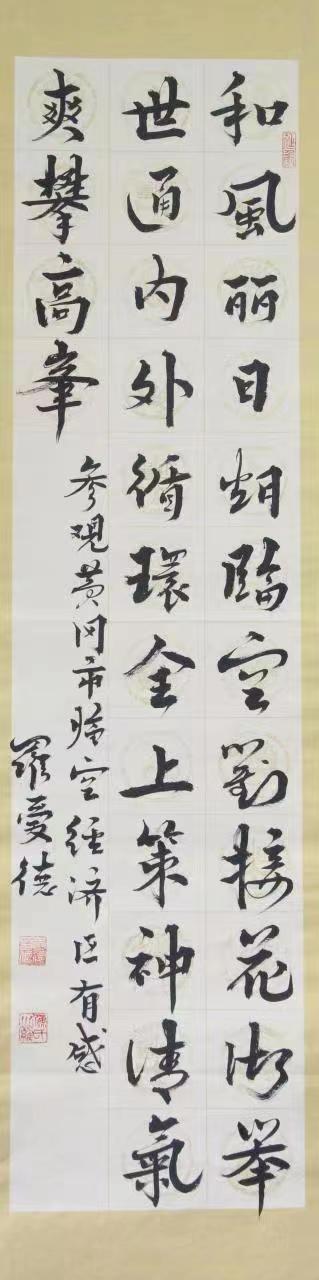 和風丽日炤臨空對接花湖举
世通内外循環全上策神清氣
爽攀高峯
参观黄冈市臨空經济区有感
羅愛德